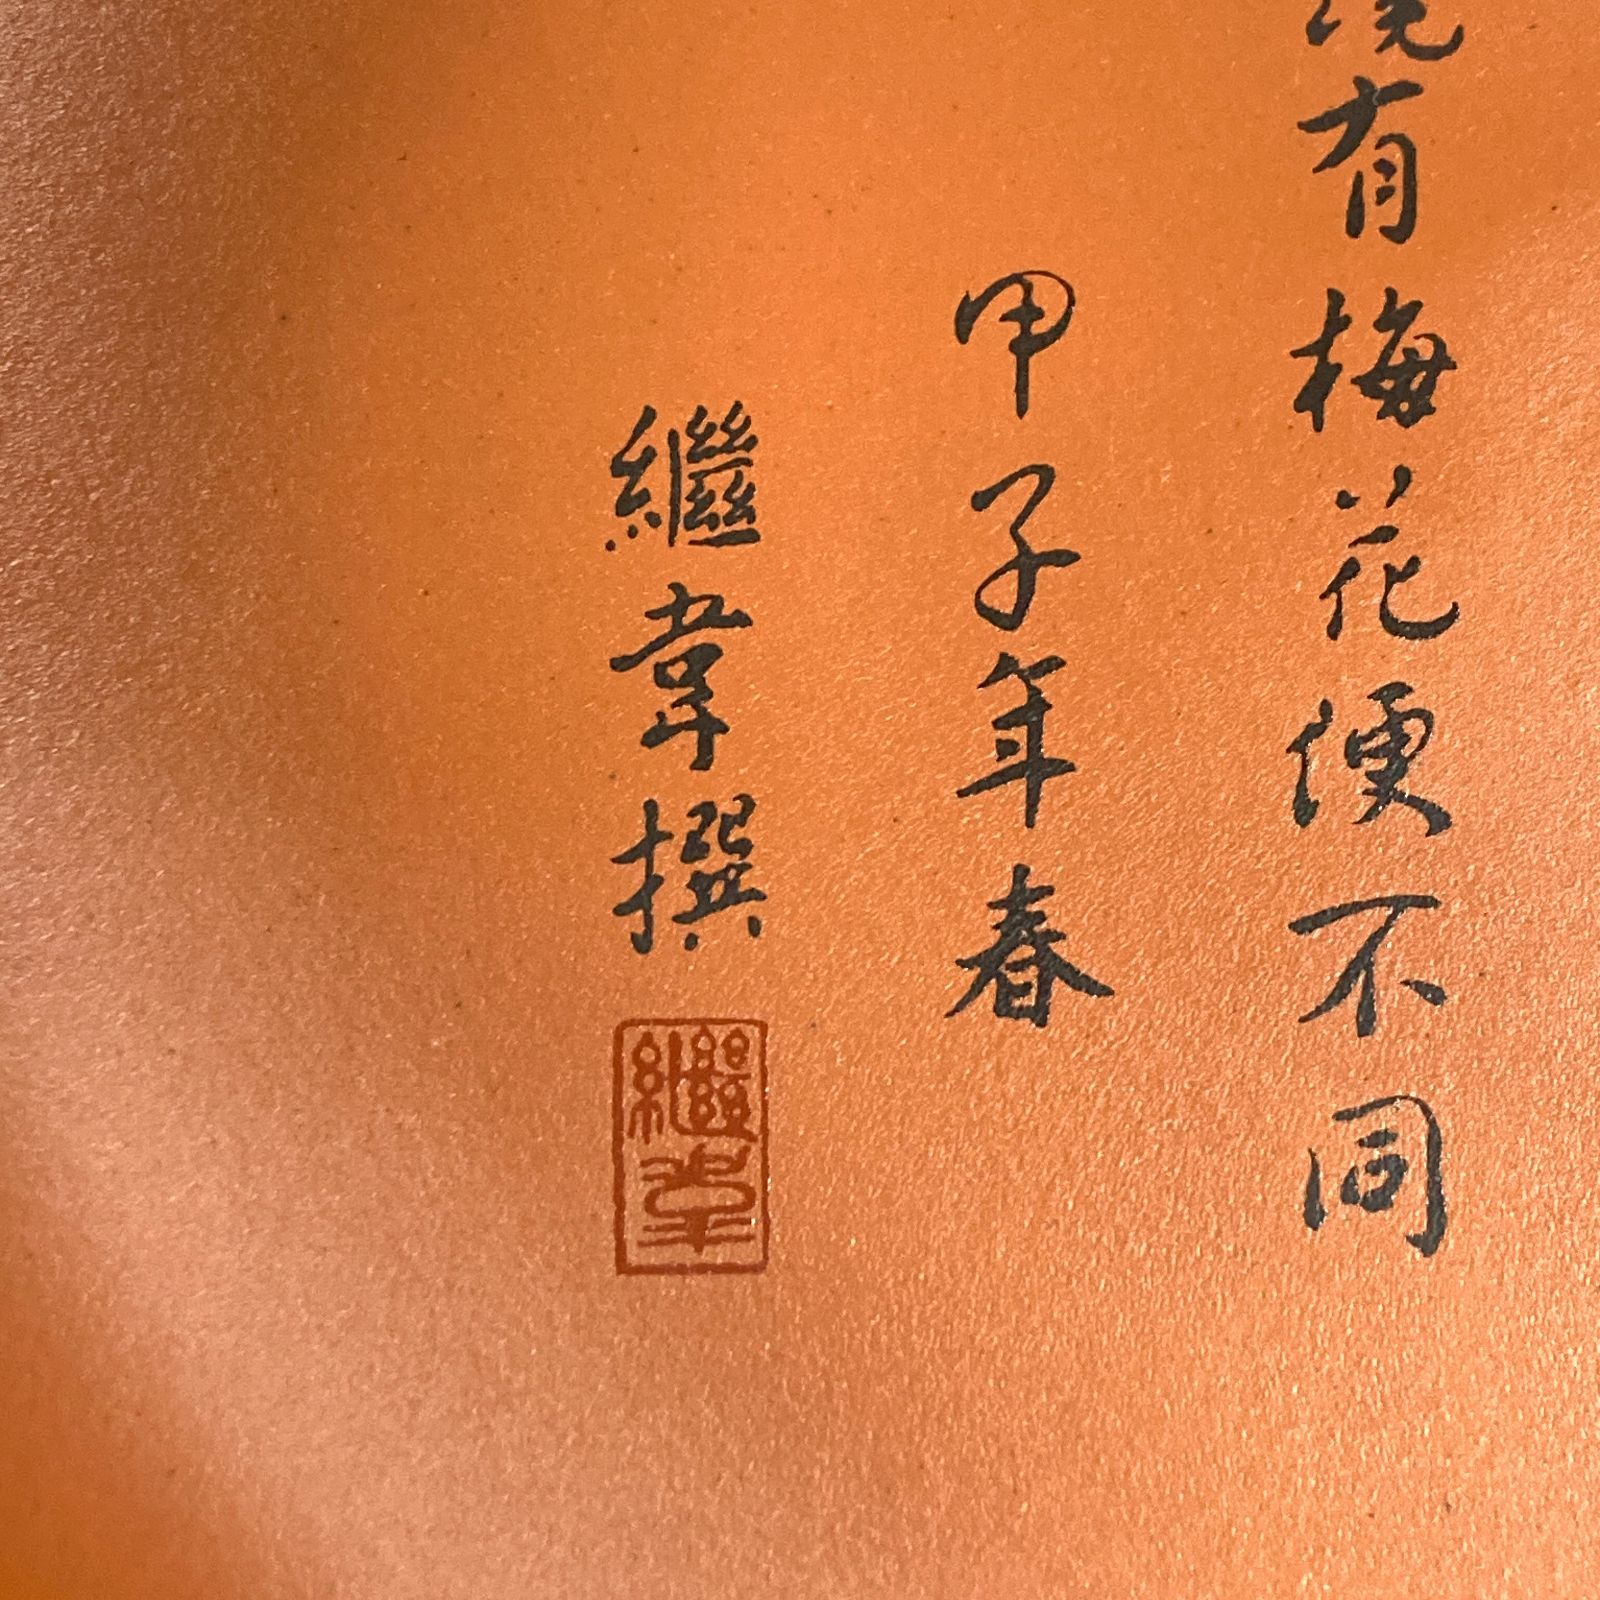 有梅花便不同
甲子年春
繼韋撰
繼